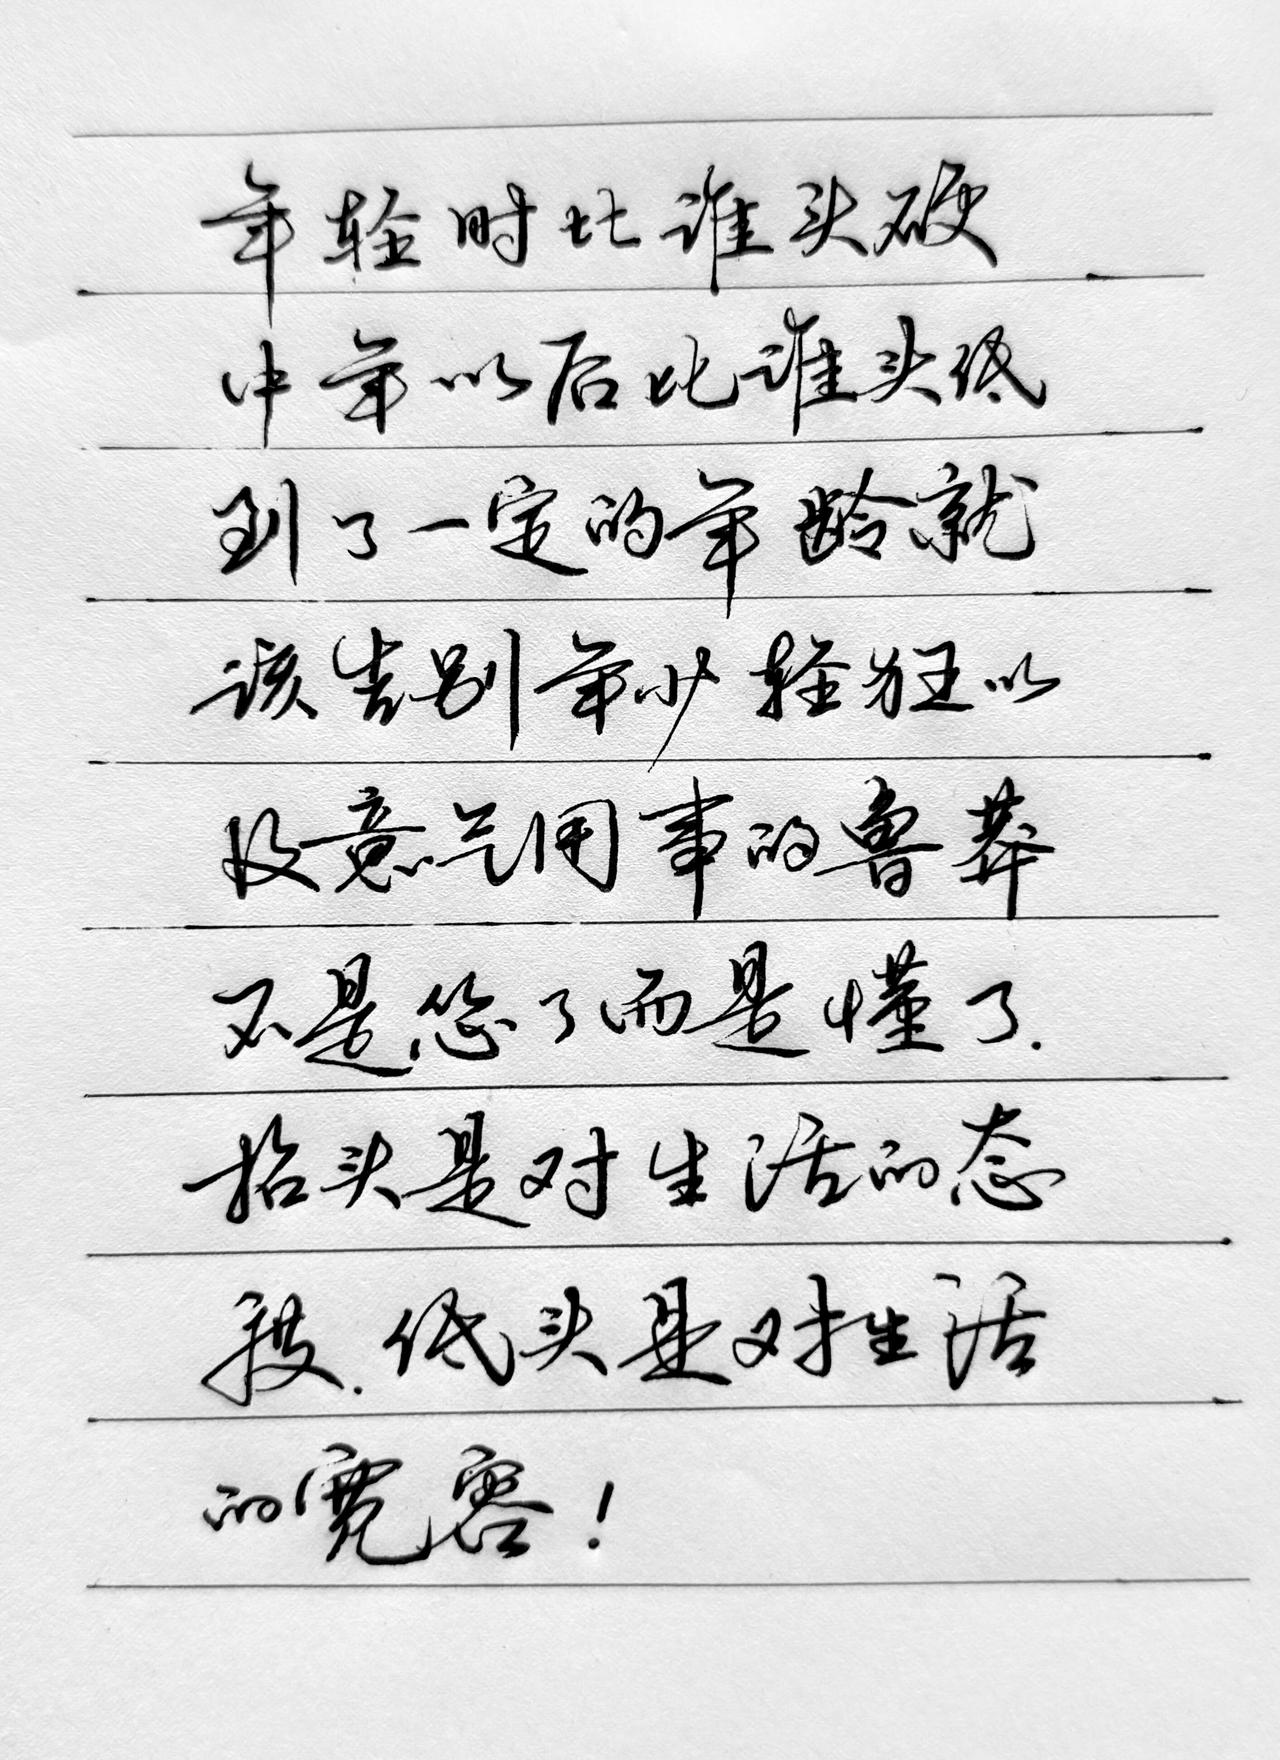 年轻时比谁头硬
中年以后比谁头低
到了一定的年龄就
该告别年少轻狂以
及意气用事的鲁莽
不是怂了而是懂了.
抬头是对生活的态
度.低头是对生活
的宽容!